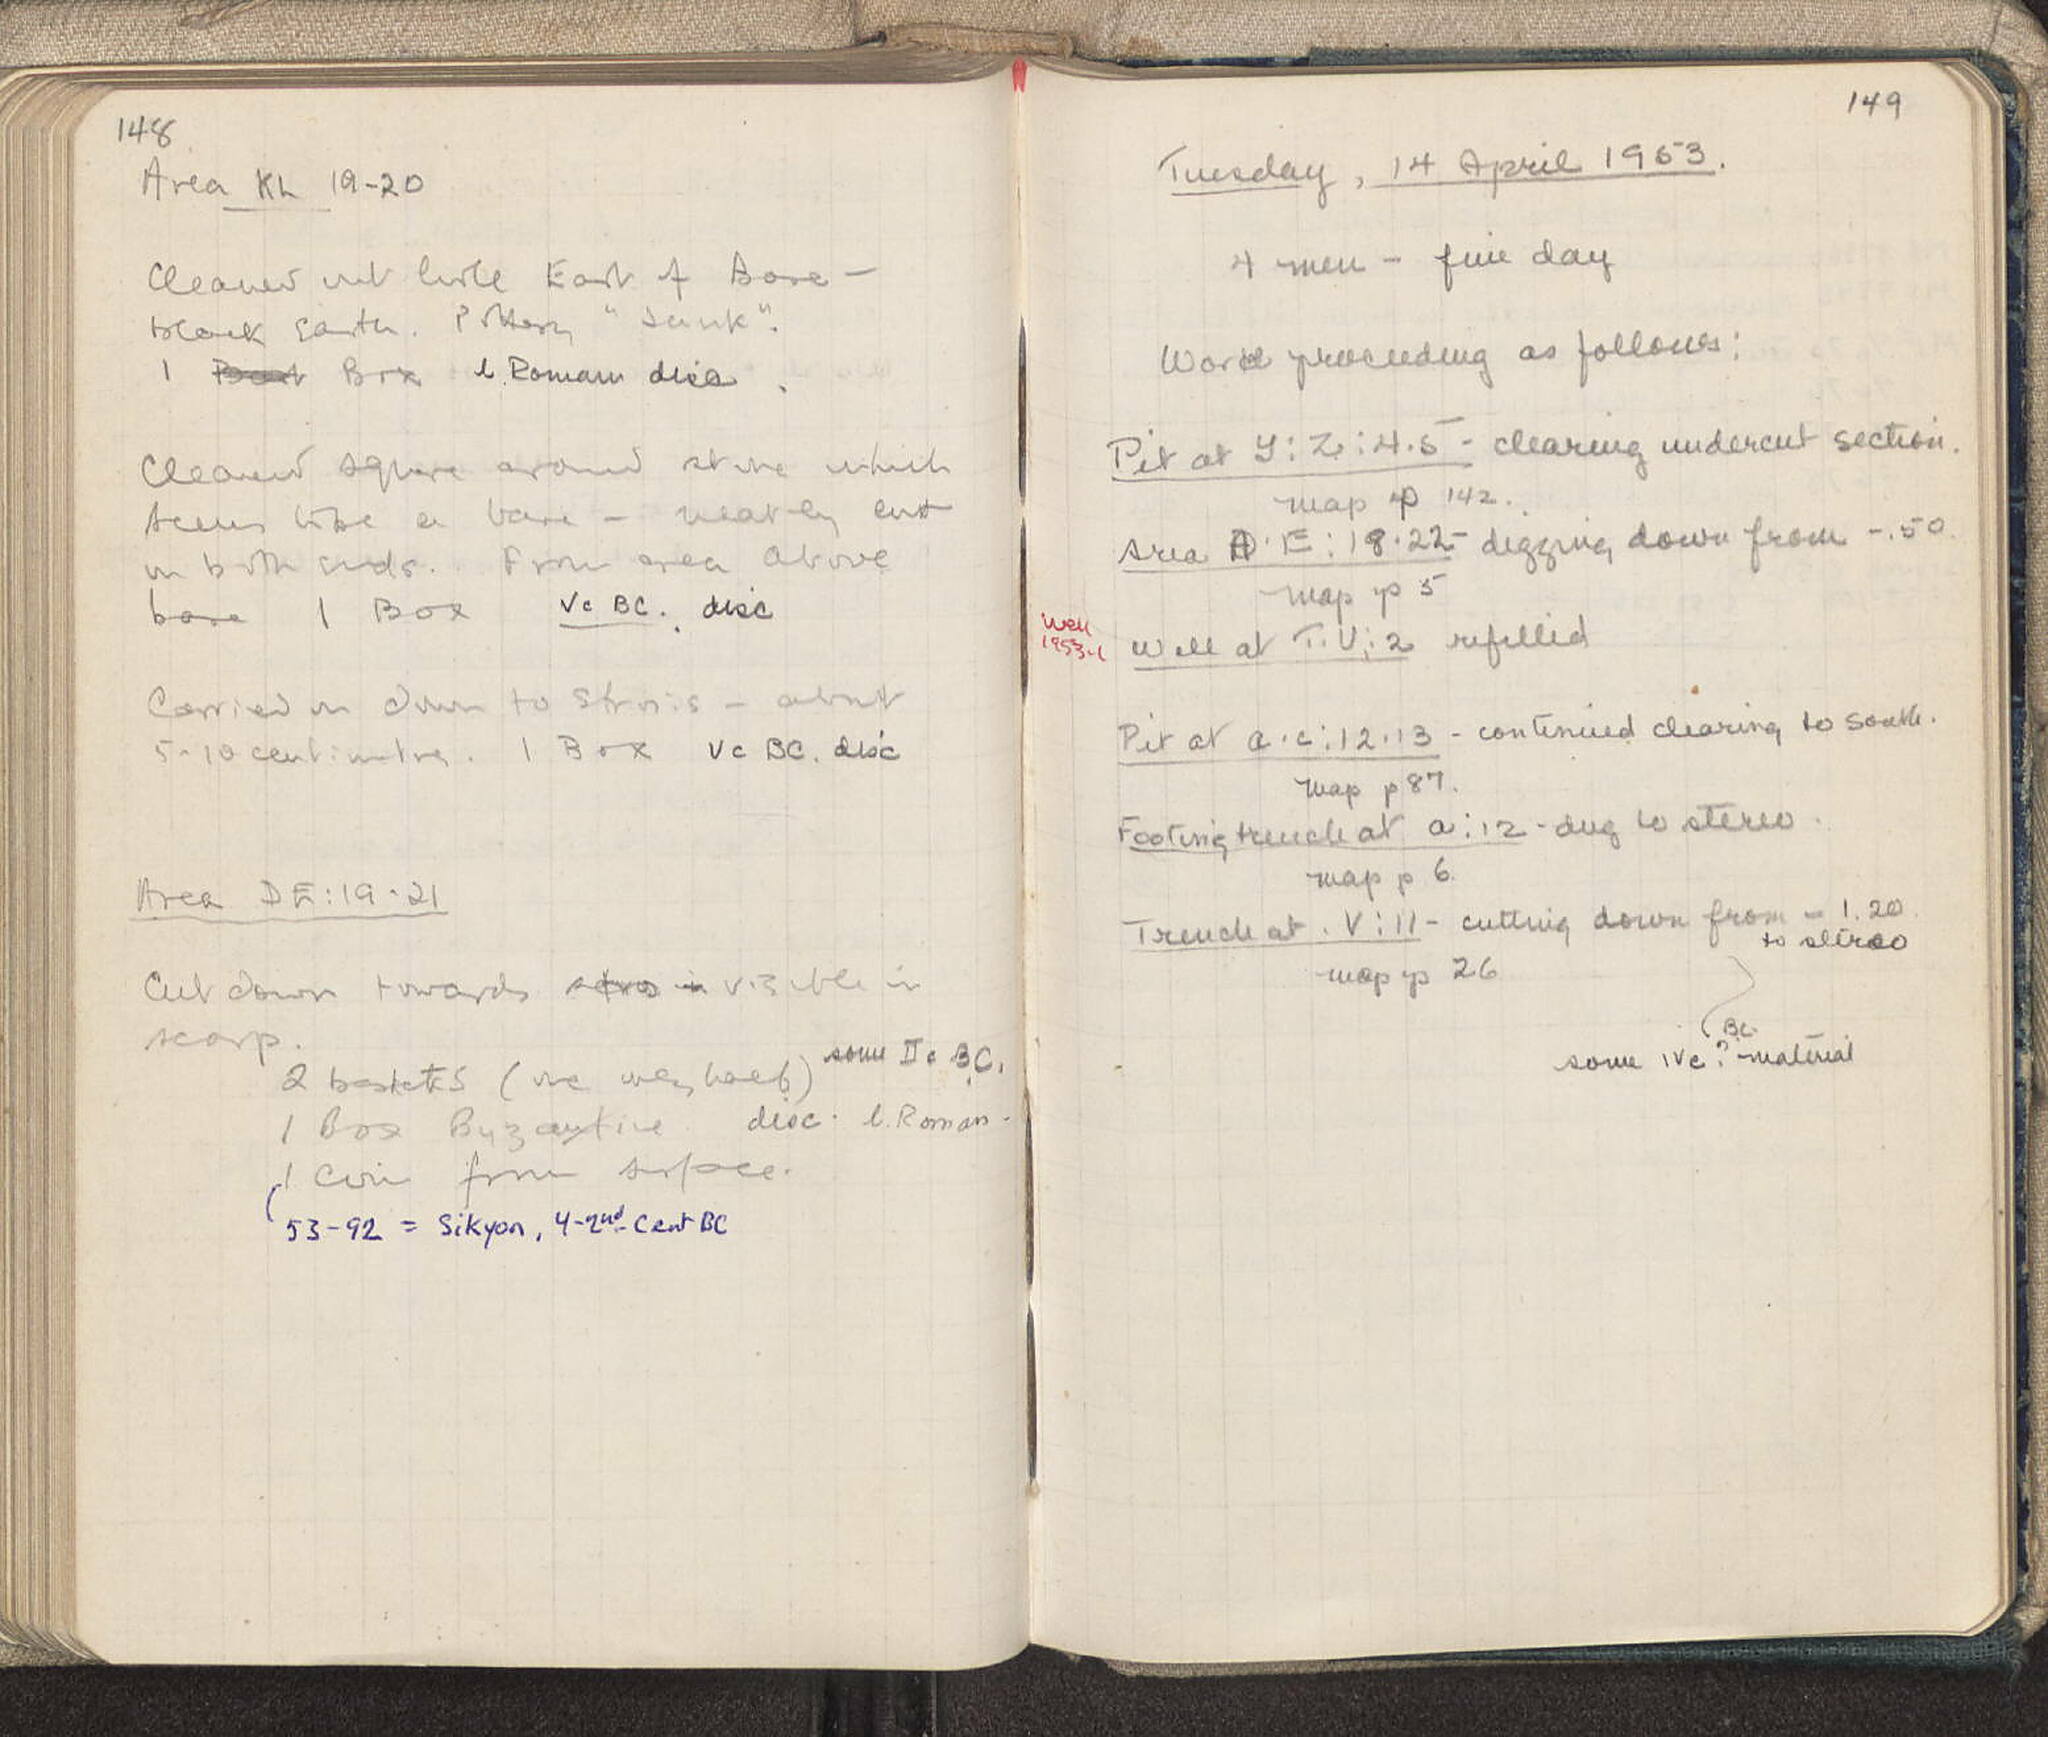 148
Area KL 19-20
Cleaned out hole East of Base -
black earth. Pottery "Junk".
1 Box l. Roman disc.
Cleaned square around stone which
seems like a base - neatly cut
on both ends. From area above
base 1 Box Vc BC. disc
Carried on down to Strosis - about
5-10 centimetres. 1 Box Vc BC. disc
Area DE:19-21
Cut down towards stros in visible in
scarp.
2 baskets (one only half) some II c B.C.
1 Box Byzantine disc. l. Roman -
1 Coin from surface.
(53-92 = Sikyon, 4-2nd Cent BC
149
Tuesday, 14 April 1953.
4 men - fine day
Work proceeding as follows:
Pit at Y:Z:4.5 - clearing undercut section.
map p 142.
Area D.E:18.22 - digging down from -.50
map p 5
Well
1953-1
Well at T.V:2 refilled
Pit at a.c:12.13 - continued clearing to south.
map p 87.
Footing trench at a:12 - dug to stereo.
map p 6.
Trench at V:11 - cutting down from - 1.20
to stereo
map p 26
some IVc? BC. material